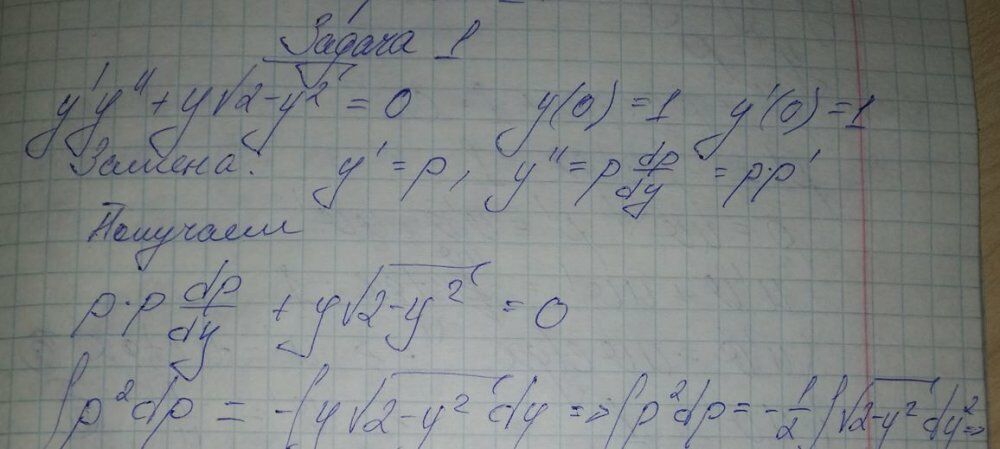 Задача 1
y'y'' + y√2-y² = 0 y(0) = 1 y'(0) = 1
Замена: y' = p, y'' = p dp/dy = p·p'
Получаем
p·p dp/dy + y√2-y² = 0
∫p²dp = -∫y√2-y² dy => ∫p²dp = -1/2 ∫√2-y² dy² =>